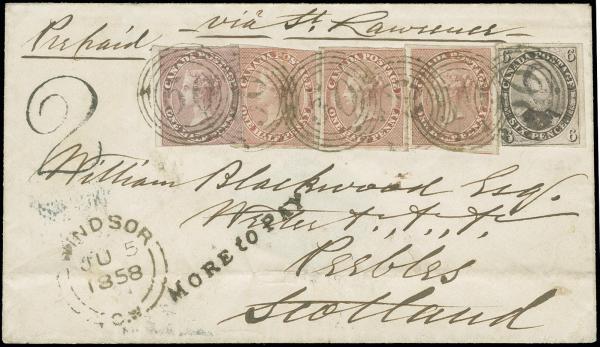 Prepaid via St. Lawrence
2
CANADA POSTAGE ONE HALF PENNY
CANADA POSTAGE ONE HALF PENNY
CANADA POSTAGE ONE HALF PENNY
CANADA POSTAGE ONE HALF PENNY
6 CANADA POSTAGE 6
6 SIX PENCE 6
William Blackwood Esq.
Writer
Peebles
Scotland
WINDSOR
JU 5
1858
C.W
MORE to PAY